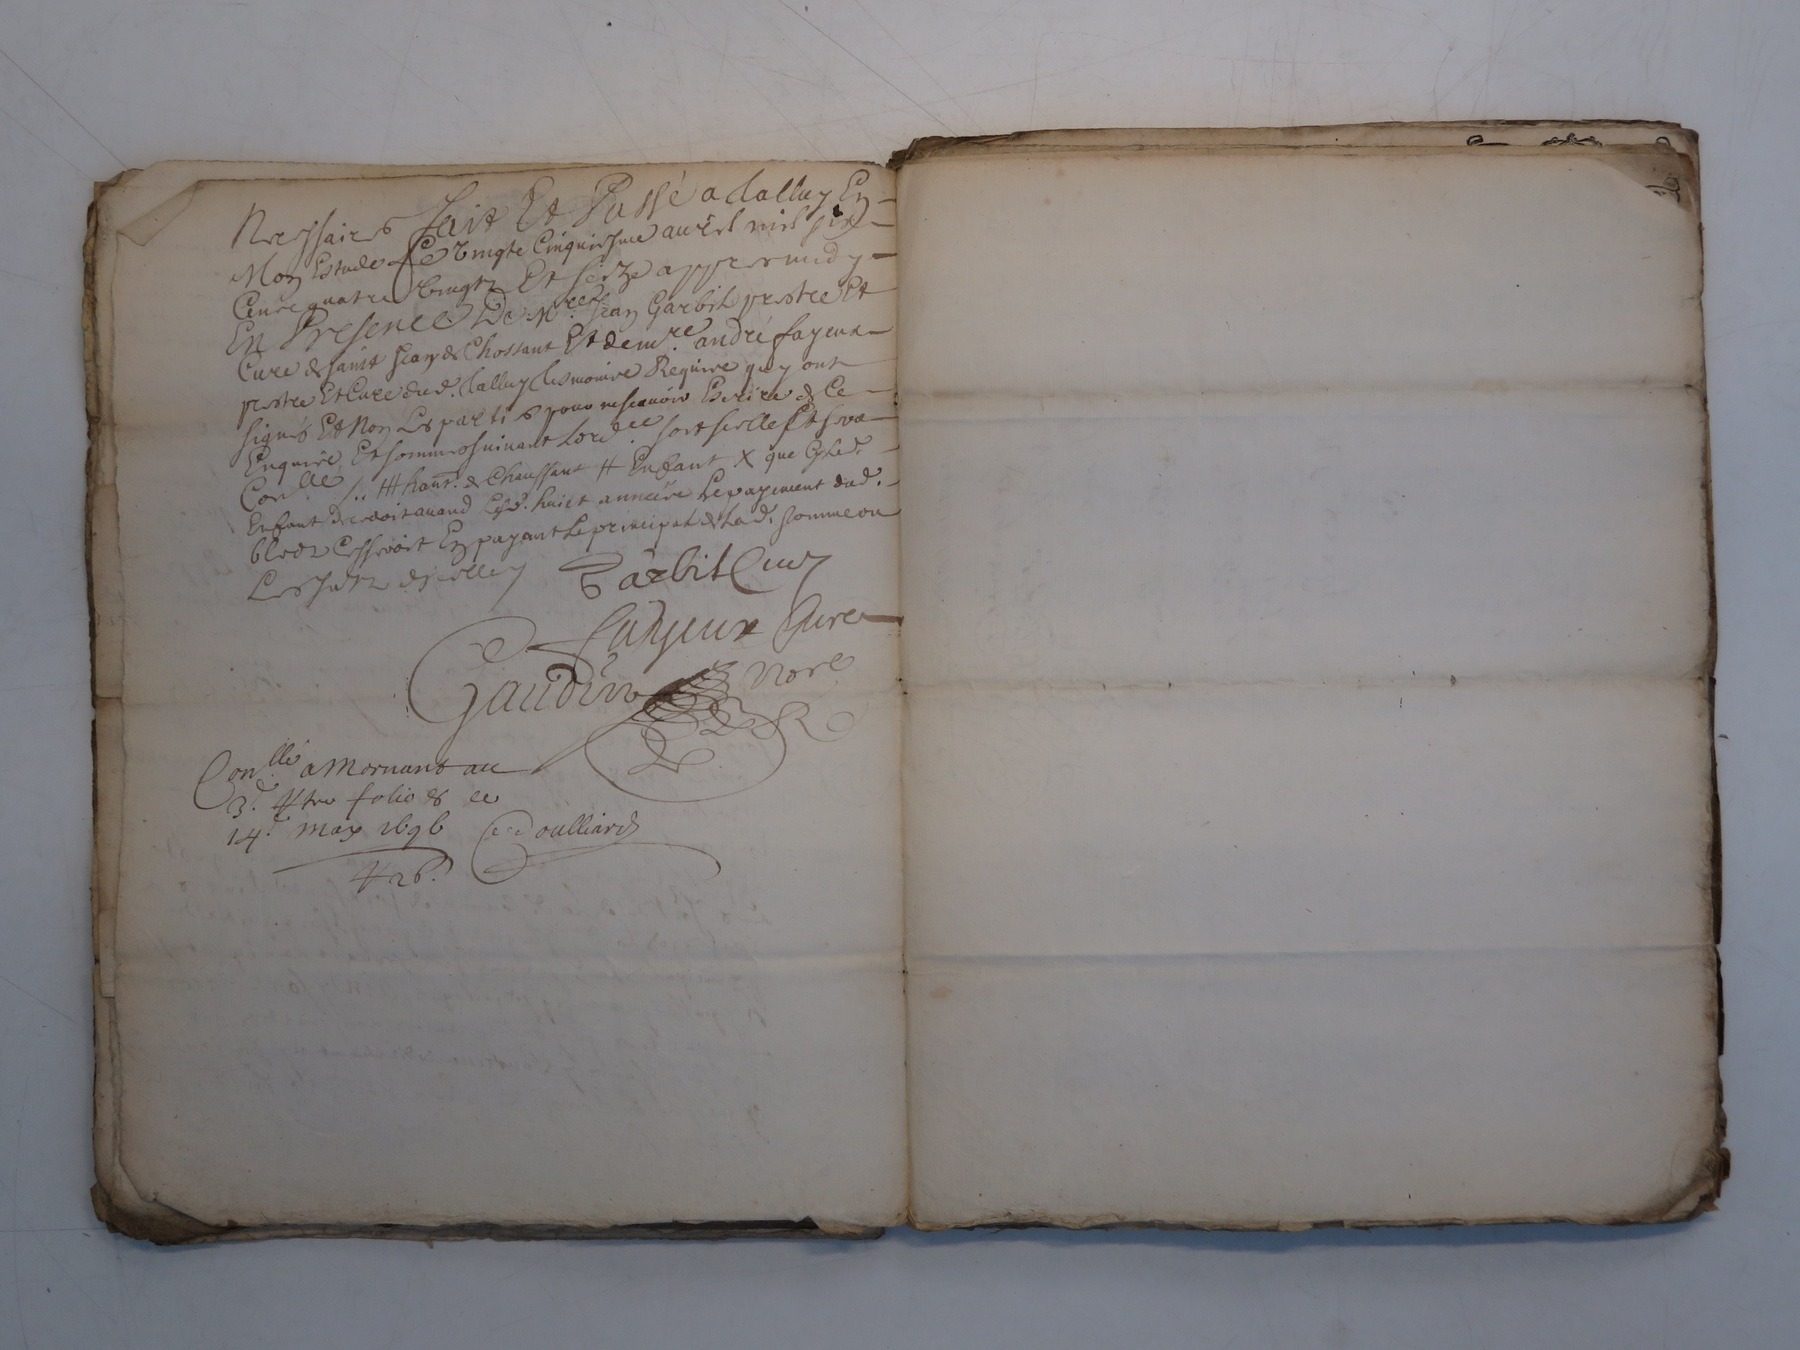 Necessaires fait Et Passé a Talluy En
Mon Estude Le vingte Cinquiesme auril mil six
Cents quatre vingtz Et seize appres midy
En Presence De Mre Jean Garbit prestre Et
Cure de saint Jean de Chossant Et de mre andré fayeux
prestre Et Cure dud. Talluy tesmoins Requis quy ont
signés Et Non Les parties pour ne scauoir Escrire de ce
Enquise Et sommes suiuant lord.ce soit scellé Et
Con.llé de Chaussant # Enfant X que
Enfant decedoit auand huict année Le payement dud.
bledz Cesseroit En payant Le principal de Lad. somme ou
Les d'icelley
Garbit Cure
fahyeux Cure
Gaudin Nore
Con.llé a Mornant au
3e folio 8 ce
14e may 1696 Doulliard
26